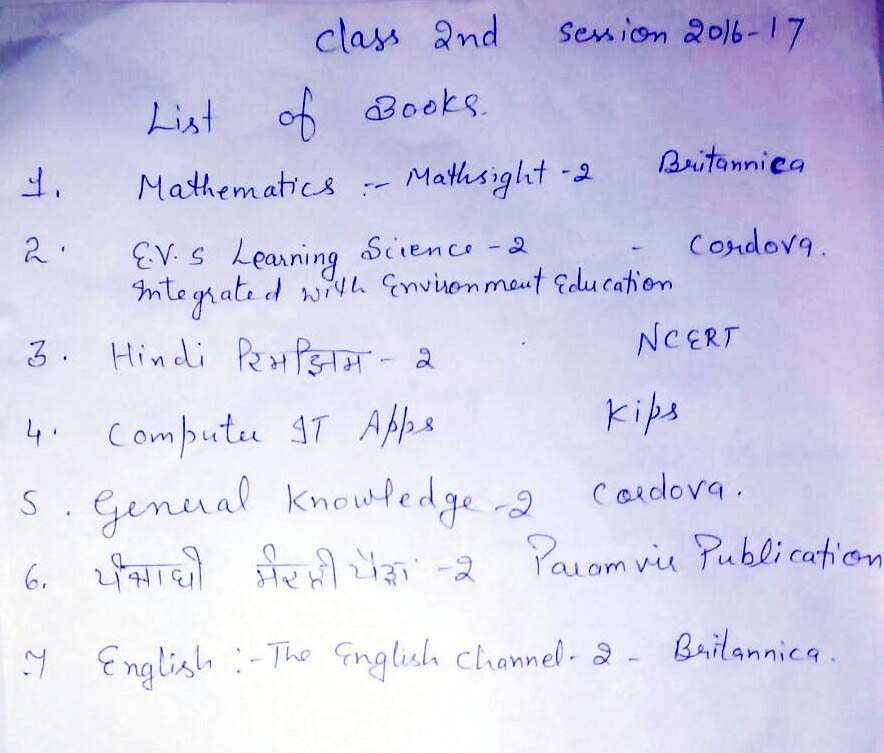 Class 2nd Session 2016-17
List of Books.
1. Mathematics :- Mathsight -2 Britannica
2. E.V.S Learning Science -2 - Cordova.
Integrated with Environment Education
3. Hindi रिमझिम - 2 NCERT
4. Computer IT Apps Kips
5. General Knowledge -2 Cordova.
6. ਪੰਜਾਬੀ -2 Paramvir Publication
7 English :- The English Channel - 2 - Britannica.